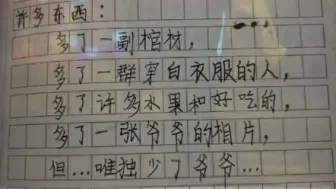 许多东西：
多了一副棺材，
多了一群穿白衣服的人，
多了许多水果和好吃的，
多了一张爷爷的相片，
但…唯独少了爷爷…